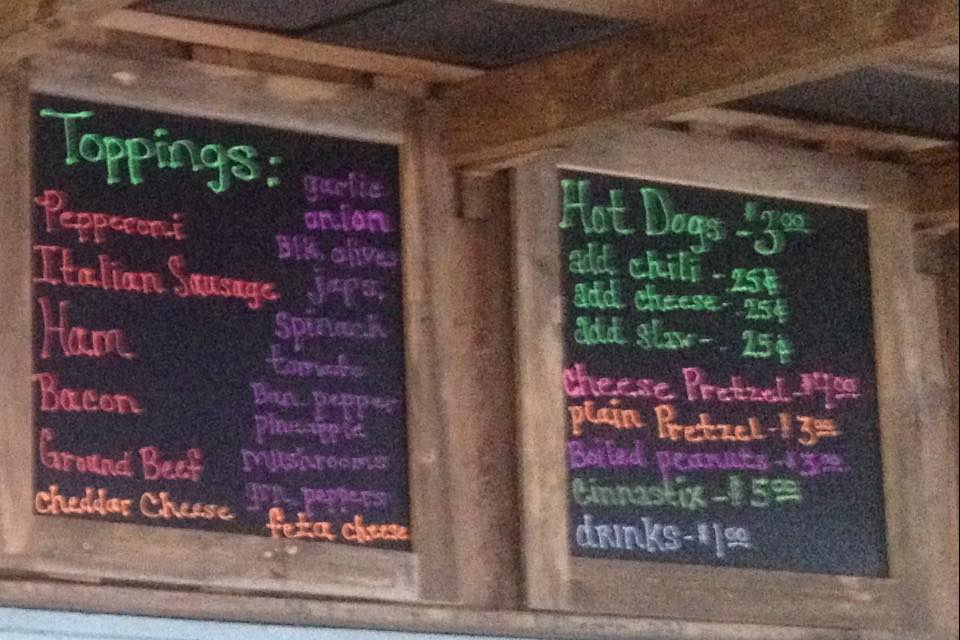 Toppings:
Pepperoni
Italian Sausage
Ham
Bacon
Ground Beef
cheddar Cheese
garlic
onion
Blk olives
japs.
spinach
tomato
Ban pepper
pineapple
mushrooms
grn peppers
feta cheese
Hot Dogs - $3.00
add chili - 25¢
add cheese - 25¢
add slaw - 25¢
cheese Pretzel - $4.00
plain Pretzel - $3.00
Boiled peanuts - $3.00
Cinnastix - $5.00
drinks - $1.00